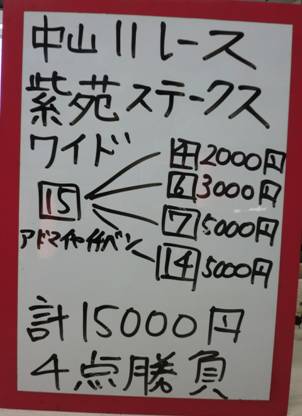 中山11レース
紫苑ステークス
ワイド
4 2000円
6 3000円
15
7 5000円
アドマイヤイチバン
14 5000円
計15000円
4点勝負